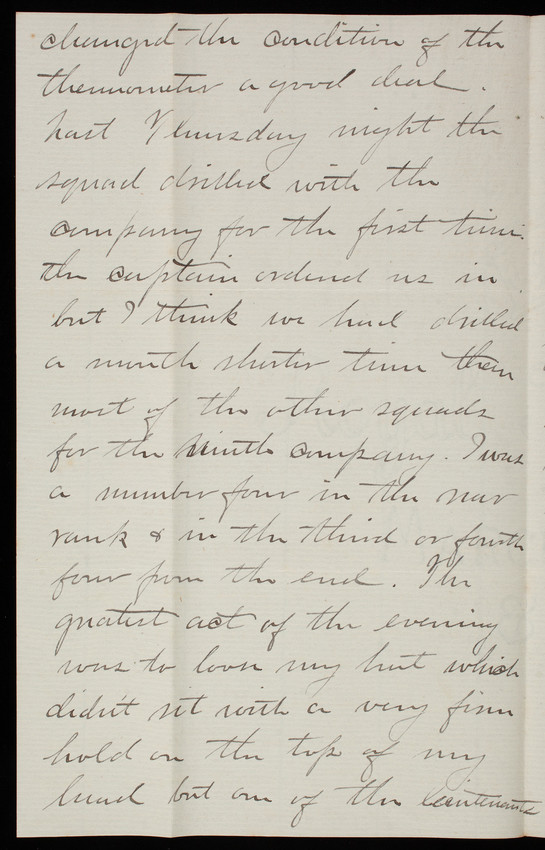 changed the condition of the
thermometer a good deal.
Last Thursday night the
squad drilled with the
company for the first time.
the captain ordered us in
but I think we had drilled
a month shorter time than
most of the other squads
for the Ninth company. I was
a number four in the rear
rank & in the third or fourth
four from the end. The
greatest act of the evening
was to loose my hat which
didn't sit with a very firm
hold on the top of my
head but one of the lieutenants